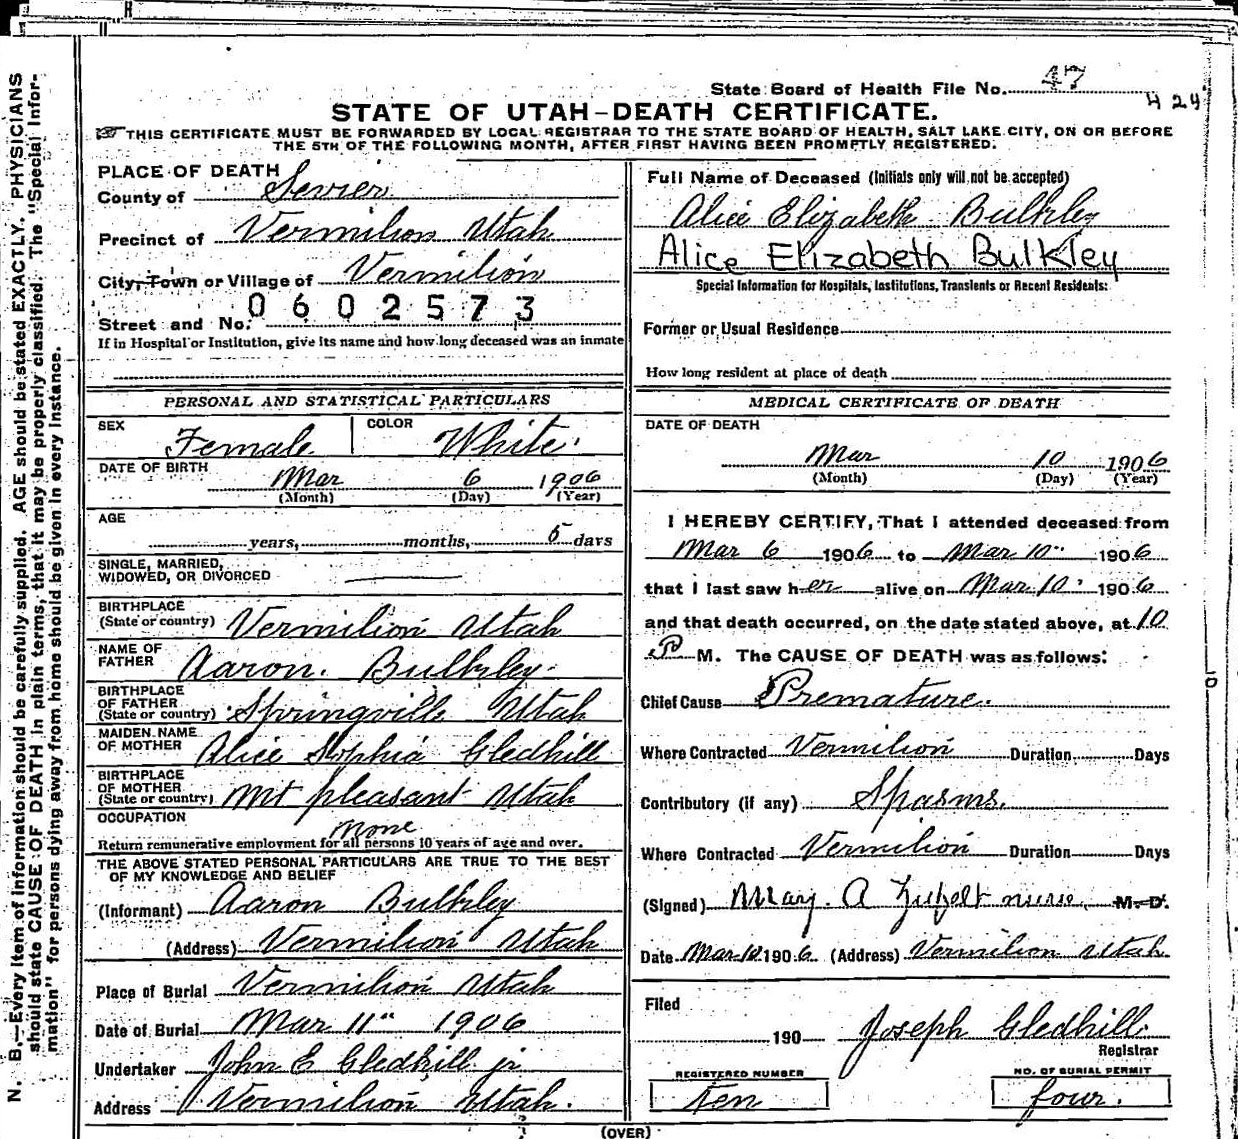 State Board of Health File No. 47
424
STATE OF UTAH-DEATH CERTIFICATE.
THIS CERTIFICATE MUST BE FORWARDED BY LOCAL REGISTRAR TO THE STATE BOARD OF HEALTH, SALT LAKE CITY, ON OR BEFORE
THE 5TH OF THE FOLLOWING MONTH, AFTER FIRST HAVING BEEN PROMPTLY REGISTERED.
PLACE OF DEATH
County of Sevier
Precinct of Vermilion Utah
City, Town or Village of Vermilion
0602573
Street and No.
If in Hospital or Institution, give its name and how long deceased was an inmate
Full Name of Deceased (Initials only will not be accepted)
Alice Elizabeth Bulkley
Alice Elizabeth Bulkley
Special Information for Hospitals, Institutions, Transients or Recent Residents:
Former or Usual Residence
How long resident at place of death
PERSONAL AND STATISTICAL PARTICULARS
SEX Female COLOR White
DATE OF BIRTH Mar 6 1906
(Month) (Day) (Year)
AGE
years, months, 5 days
SINGLE, MARRIED,
WIDOWED, OR DIVORCED
BIRTHPLACE
(State or country) Vermilion Utah
NAME OF
FATHER Aaron. Bulkley
BIRTHPLACE
OF FATHER
(State or country) Springville Utah
MAIDEN NAME
OF MOTHER Alice Sophia Gledhill
BIRTHPLACE
OF MOTHER
(State or country) Mt pleasant Utah
OCCUPATION
None
Return remunerative employment for all persons 10 years of age and over.
THE ABOVE STATED PERSONAL PARTICULARS ARE TRUE TO THE BEST
OF MY KNOWLEDGE AND BELIEF
(Informant) Aaron Bulkley
(Address) Vermilion Utah
Place of Burial Vermilion Utah
Date of Burial Mar 11" 1906
Undertaker John E Gledhill jr
Address Vermilion Utah.
MEDICAL CERTIFICATE OF DEATH
DATE OF DEATH
Mar 10 1906
(Month) (Day) (Year)
I HEREBY CERTIFY, That I attended deceased from
Mar 6 1906 to Mar 10" 1906
that I last saw her alive on Mar 10" 1906
and that death occurred, on the date stated above, at 10
P M. The CAUSE OF DEATH was as follows:
Chief Cause Premature.
Where Contracted Vermilion Duration Days
Contributory (if any) Spasms.
Where Contracted Vermilion Duration Days
(Signed) Mary. A nurse M. D.
Date Mar 10 1906 (Address) Vermilion Utah
Filed
190 Joseph Gledhill
Registrar
REGISTERED NUMBER
Ten
NO. OF BURIAL PERMIT
four.
(OVER)
N. B.—Every item of information should be carefully supplied. AGE should be stated EXACTLY. PHYSICIANS
should state CAUSE OF DEATH in plain terms, that it may be properly classified. The "Special Infor-
mation" for persons dying away from home should be given in every instance.